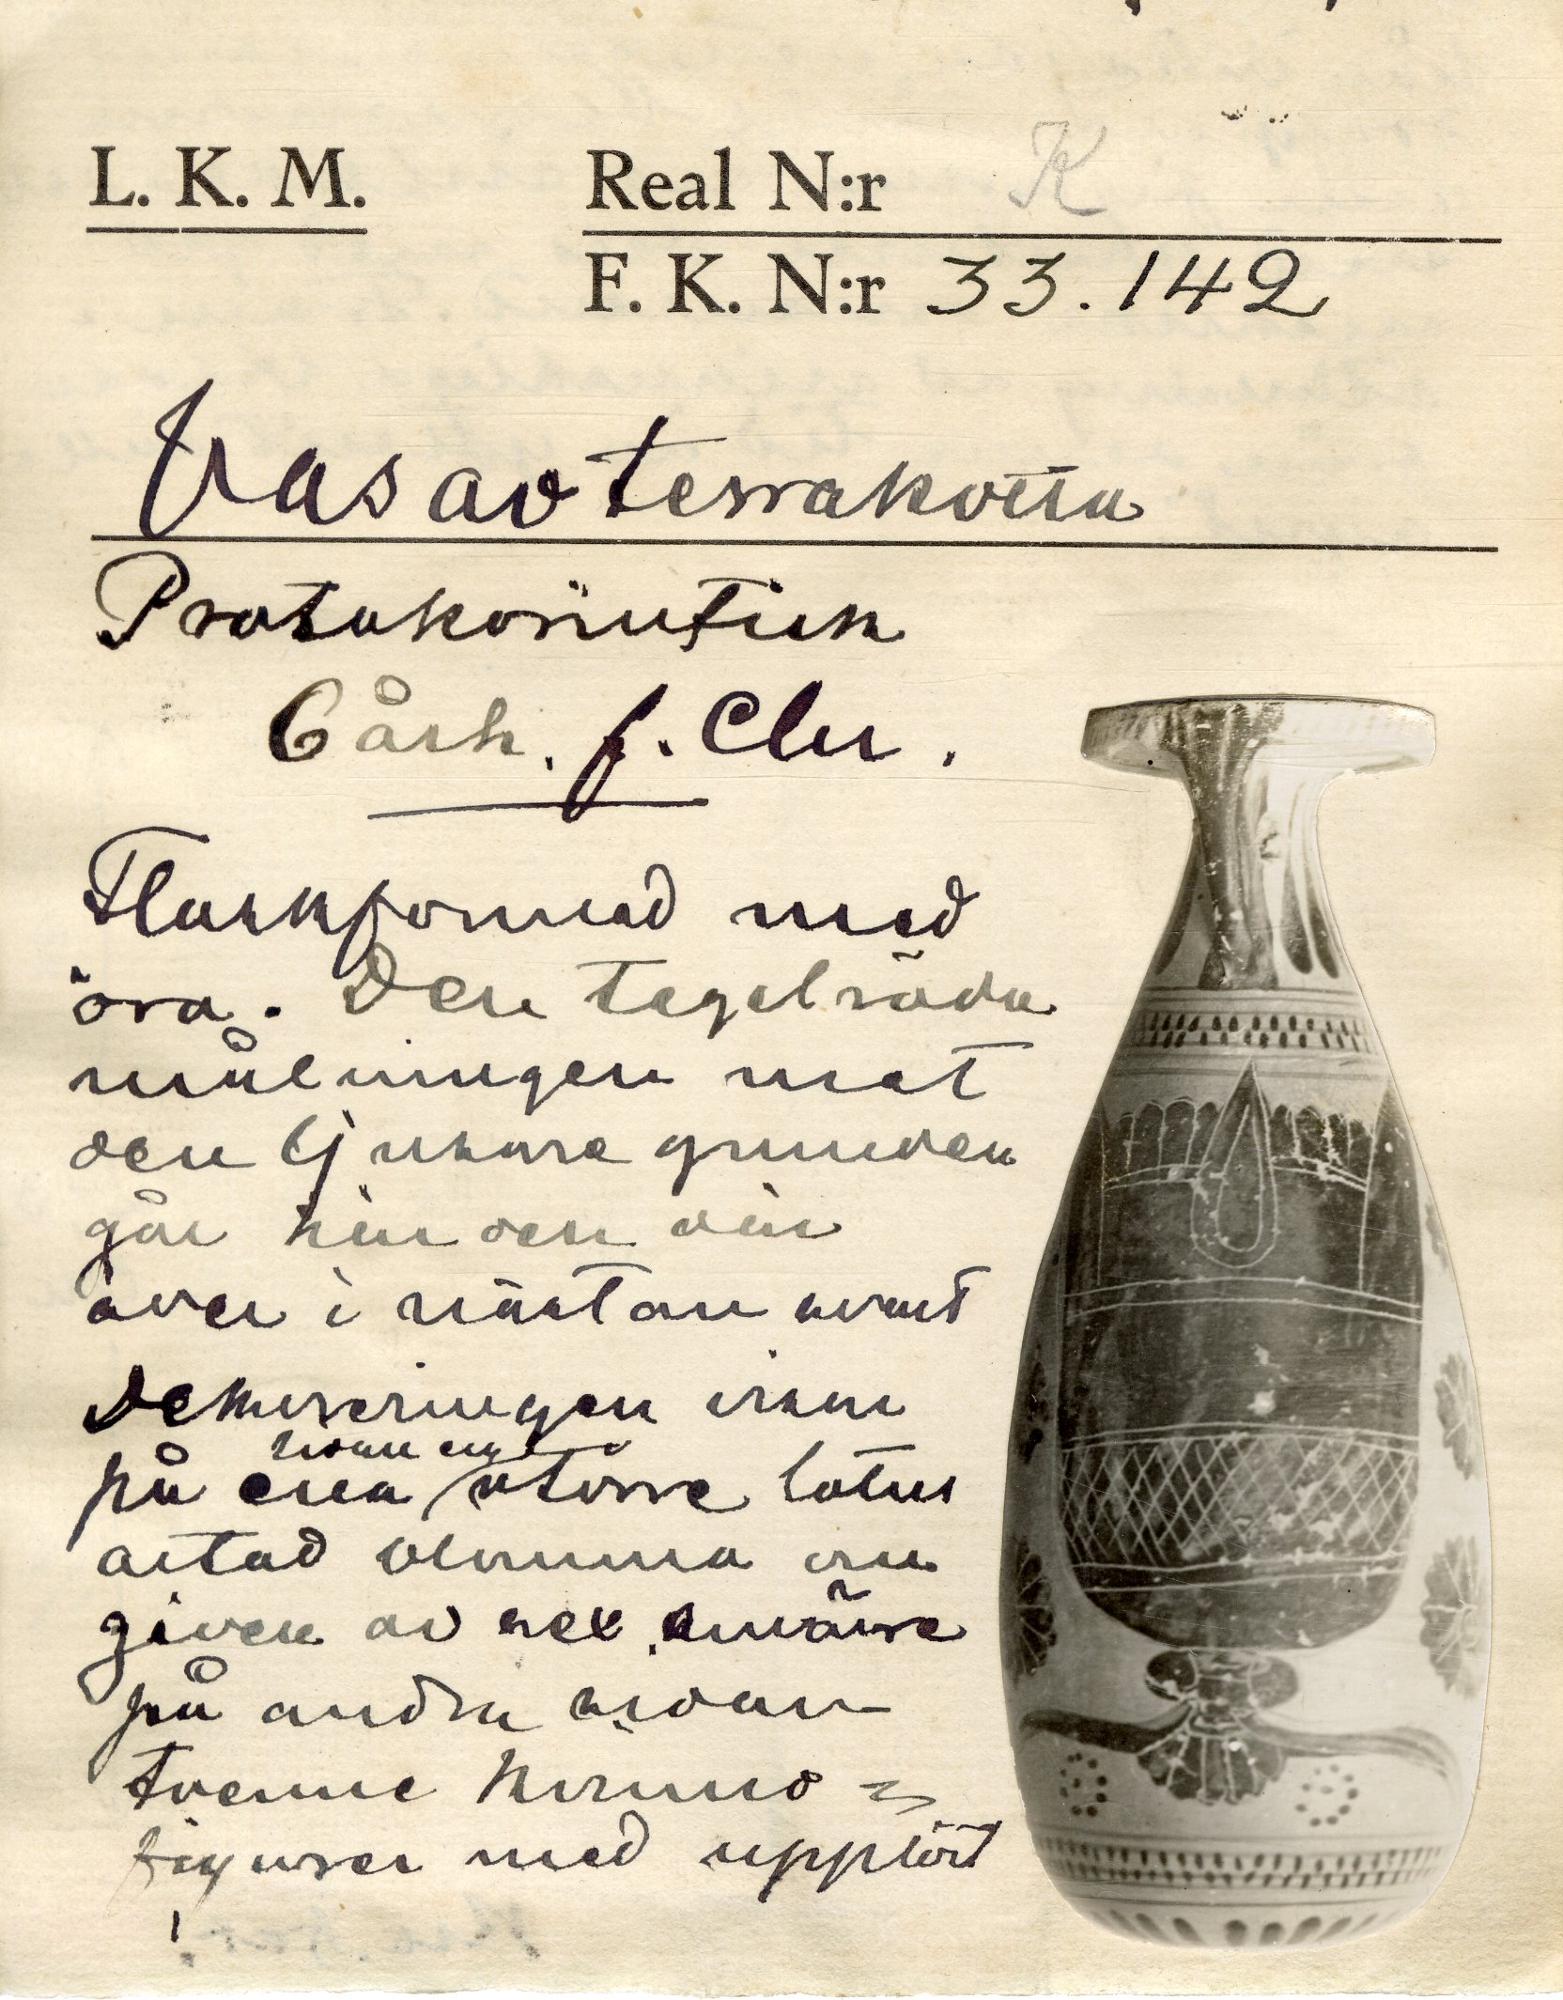 L. K. M.
Real N:r K
F. K. N:r 33.142
Vas av terrakotta
Protokorintisk
6 årh. f. Chr.
Flaskformad med
öra. Den tegelröda
målningen mot
den ljusare grunden
går här och där
över i nästan svart
Dekoreringen visar
på ena sidan en större lotus
artad blomma om
given av sex
på andra sidan
tvenne kvinno=
figurer med upplöst